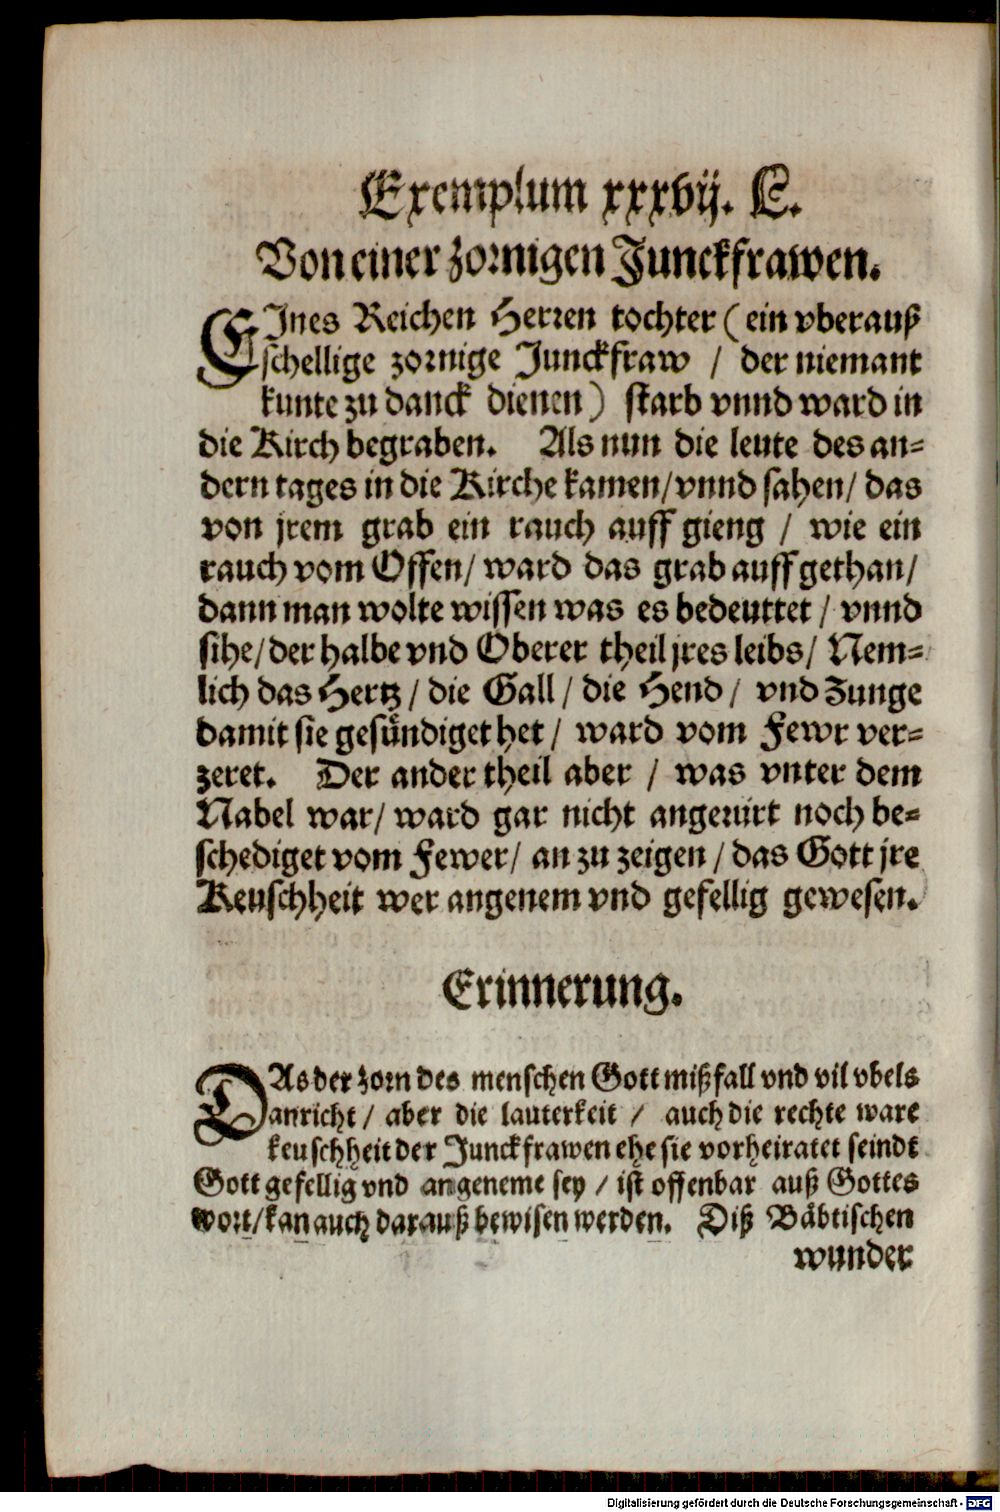 Exemplum xxxvij. E.
Von einer zornigen Junckfrawen.
EJnes Reichen Herren tochter (ein vberauß
schellige zornige Junckfraw / der niemant
kunte zu danck dienen) starb vnnd ward in
die Kirch begraben. Als nun die leute des an⸗
dern tages in die Kirche kamen/vnnd sahen/ das
von jrem grab ein rauch auff gieng / wie ein
rauch vom Offen/ ward das grab auff gethan/
dann man wolte wissen was es bedeuttet / vnnd
sihe/der halbe vnd Oberer theil jres leibs/ Nem⸗
lich das Hertz / die Gall / die Hend / vnd Zunge
damit sie gesündiget het / ward vom Fewr ver⸗
zeret. Der ander theil aber / was vnter dem
Nabel war/ ward gar nicht angerürt noch be⸗
schediget vom Fewer/ an zu zeigen / das Gott jre
Keuschheit wer angenem vnd gefellig gewesen.
Erinnerung.
DAs der zorn des menschen Gott mißfall vnd vil vbels
anricht / aber die lauterkeit / auch die rechte ware
keuschheit der Junckfrawen ehe sie vorheiratet seindt
Gott gefellig vnd angeneme sey / ist offenbar auß Gottes
wort/kan auch darauß bewisen werden. Diß Bäbtischen
wunder
Digitalisierung gefördert durch die Deutsche Forschungsgemeinschaft - DFG